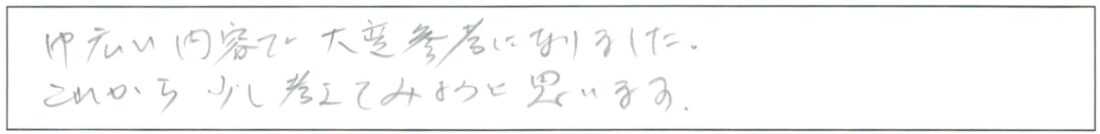 巾広い内容で大変参考になりました。
これから少し考えてみようと思います。